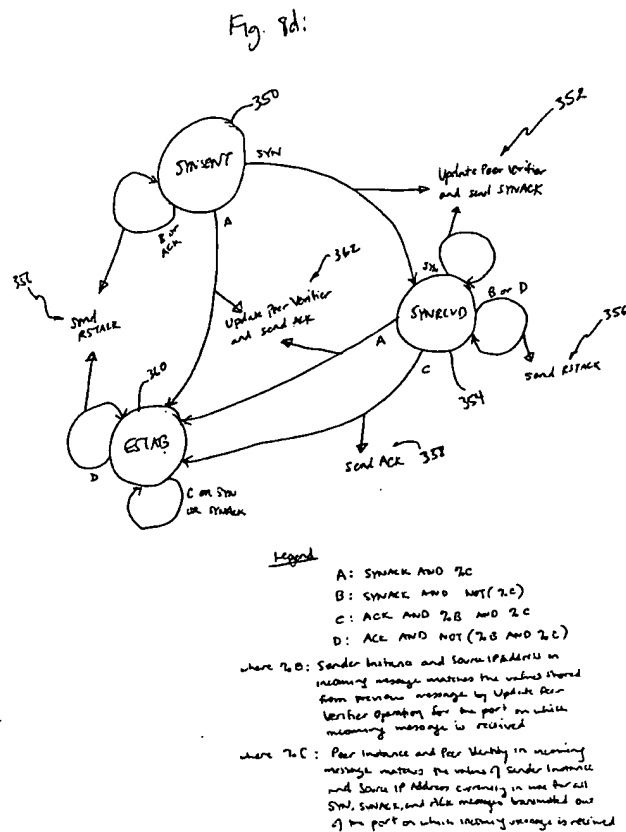 Fig. 8d:
350
352
SYNSENT
SYN
Update Peer Verifier
and send SYNACK
B or
ACK
A
362
SYN
B or D
356
Send
RSTACK
Update Peer Verifier
and send ACK
SYNRCVD
A
C
356
send RSTACK
360
354
ESTAB
D
send ACK
358
C or SYN
or SYNACK
Legend
A: SYNACK AND %C
B: SYNACK AND NOT(%C)
C: ACK AND %B AND %C
D: ACK AND NOT (%B AND %C)
where %B: Sender Instance and Source IP Address in
incoming message matches the values stored
from previous message by Update Peer
Verifier Operation for the port on which
incoming message is received
where %C: Peer Instance and Peer Identity in incoming
message matches the values of Sender Instance
and Source IP Address currently in use for all
SYN, SYNACK, and ACK messages transmitted out
of the port on which incoming message is received